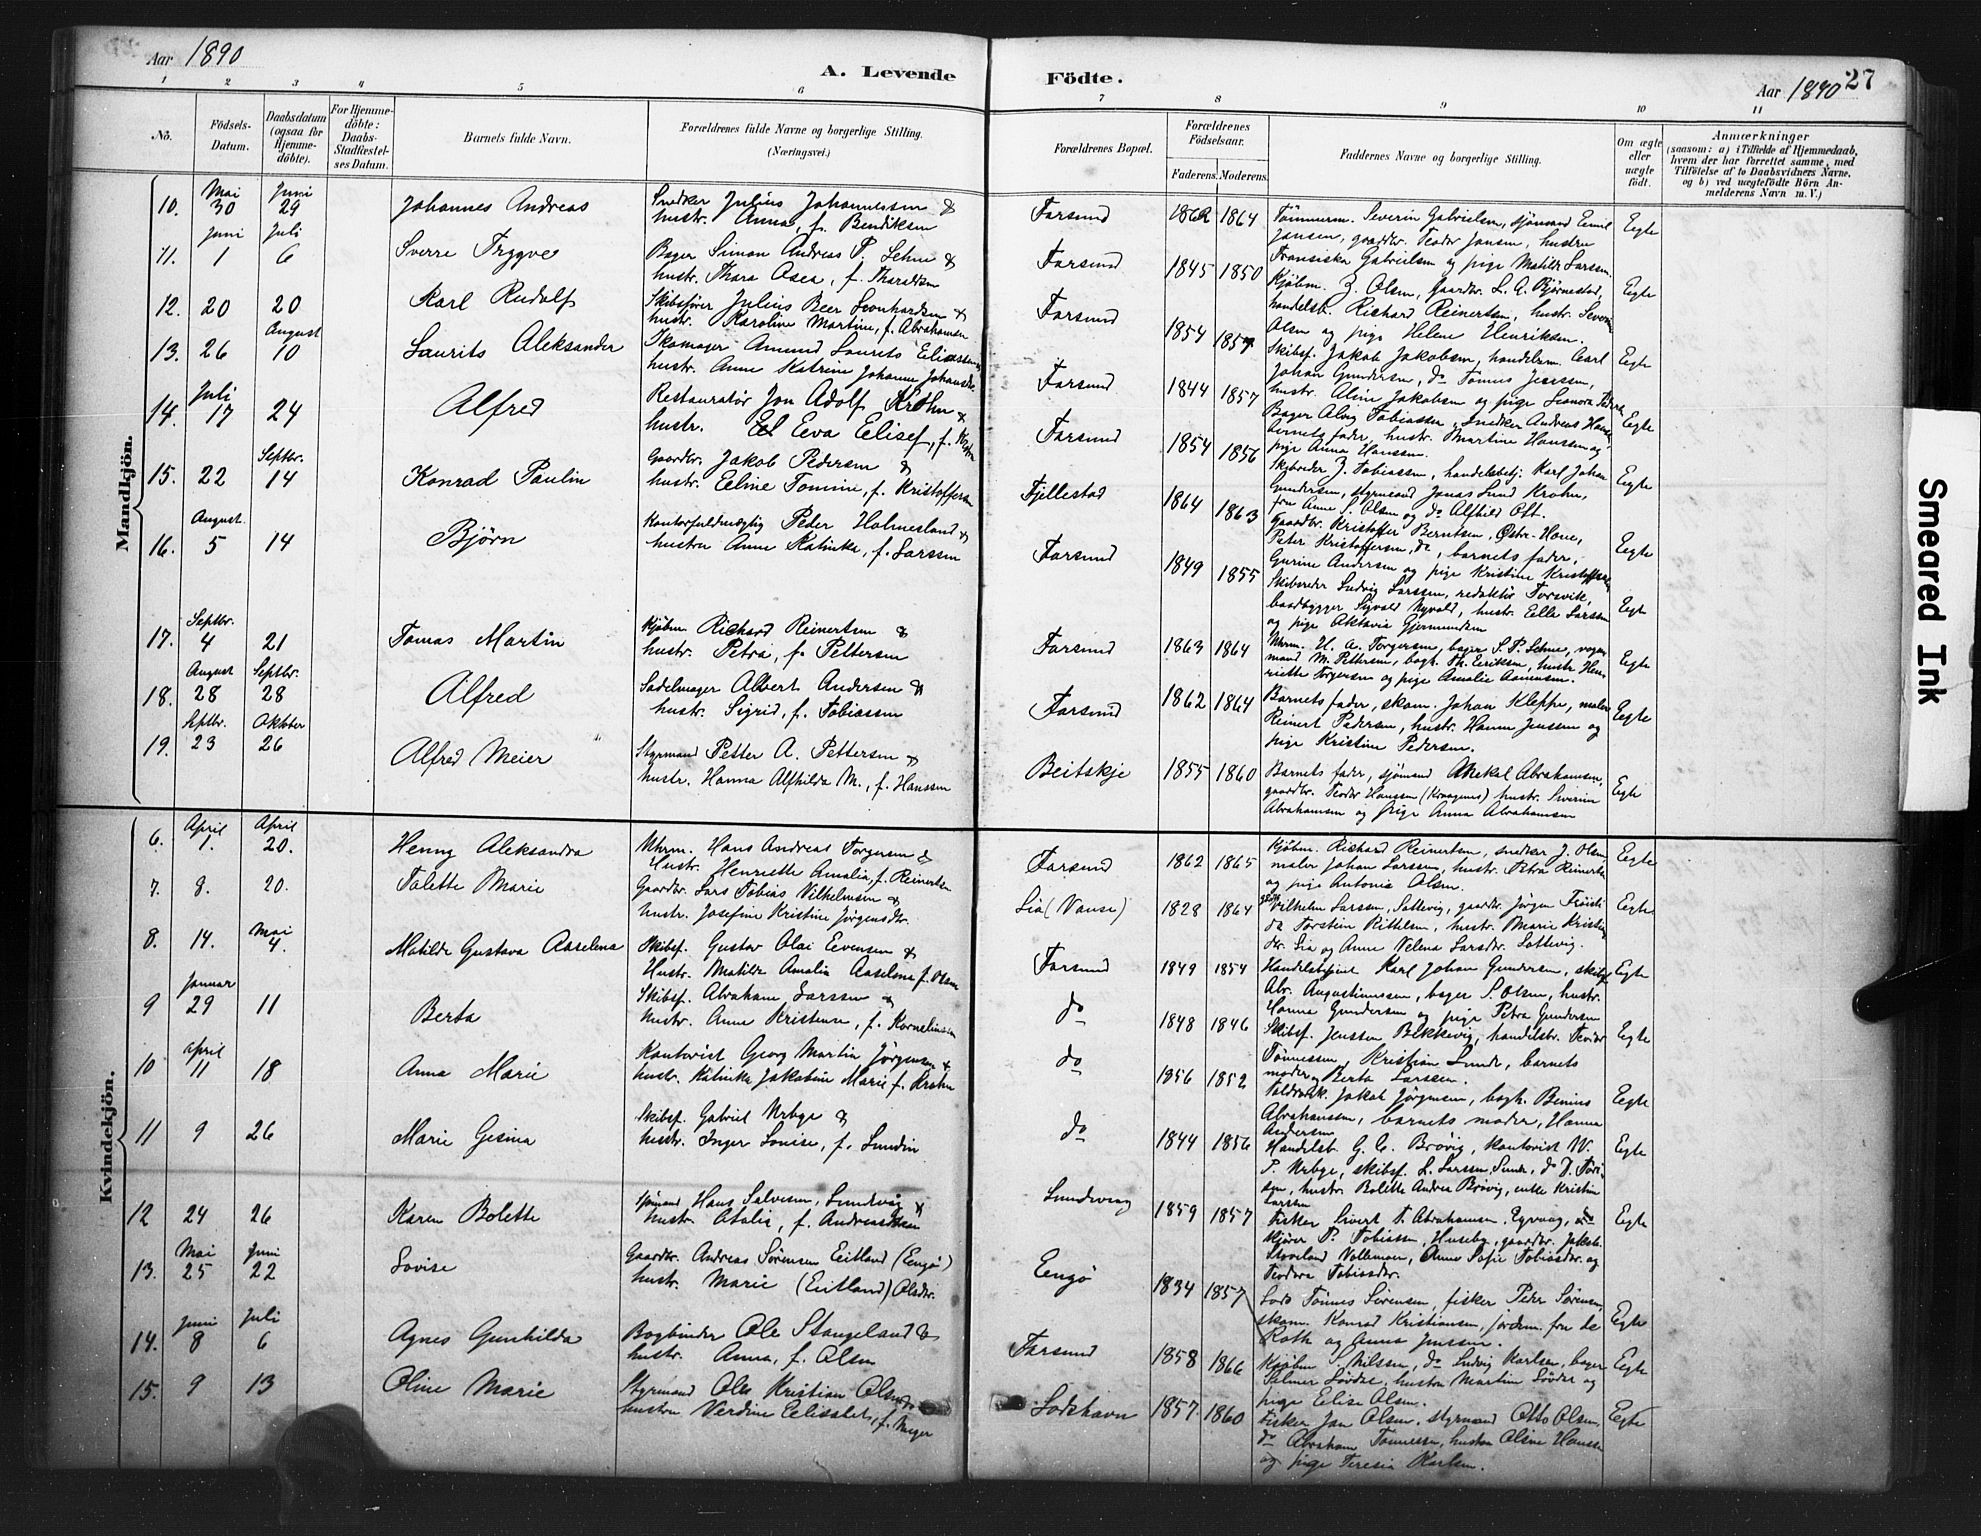 Aar 1890
A. Levende Födte.
Aar 1890 27
1 2 3 4 5 6 7 8 9 10 11
No.
Födsels-Datum.
Daabsdatum (ogsaa for Hjemmedöbte).
For Hjemmedöbte: Daabs-Stadfæstelses Datum.
Barnets fulde Navn.
Forældrenes fulde Navne og borgerlige Stilling.
(Næringsvei.)
Forældrenes Bopæl.
Forældrenes Födselsaar.
Faderens. Moderens.
Faddernes Navne og borgerlige Stilling.
Om ægte eller uægte födt.
Anmærkninger
(saasom: a) i Tilfælde af Hjemmedaab, hvem der har forrettet samme, med Tilföielse af to Daabsvidners Navne, og b) ved uægtefödte Börn Anmelderens Navn m. V.)
Mandkjön.
10. Mai 30 Juni 29 Johannes Andreas
Snedker Julius Johannessen &
hustr. Anna, f. Bendiksen
Farsund 1862 1864
Tømmerm. Severin Gabrielsen, sjømand Emil
Jansen, gaardbr. Teodor Jansen, hustru
Fransiska Gabrielsen og pige Matilde Larssen.
Egte
11. Juni 1 Juli 6 Sverre Trygve
Bager Simon Andreas P. Lehne &
hustr. Thara Asea, f. Tharaldsen
Farsund 1845 1850
Kjøbm. Z. Olsen, gaardbr. L. A. Bjørnestad,
handelsb. Richard Reinertsen, hustr. Severine
Olsen og pige Helene Henriksen.
Egte
12. 20 20 Karl Rudolf
Skibsfører Julius Beer Leonhardsen &
hustr. Karoline Martine, f. Abrahamsen
Farsund 1854 1857
Skibsf. Jakob Jakobsen, handelsm. Carl
Johan Gundersen, do Tomas Jenssen,
hustr. Aline Jakobsen og pige Leonora Pedersen
Egte
13. 26 August 10 Laurits Aleksander
Skomager Amund Laurets Eliassen &
hustr. Anne Katrine Johanne Johansdr.
Farsund 1844 1857
Bager Alvig Tobiassen, Snedker Andreas Hansen
barnets fader, hustr. Martine Hanssen og
pige Anna Hanssen.
Egte
14. Juli 17 24 Alfred
Restauratør Jon Adolf Krohn &
hustr. Eva Elisef, f.
Farsund 1854 1856
Skibreder Z. Tobiassen, handelsbetj. Karl Johan
Gundersen, styrmand Jonas Lund Krohn,
fru Anne S. Olsen og do Alfhild Ott.
Egte
15. 22 Septbr. 14 Konrad Paulin
Gaardbr. Jakob Pedersen &
hustr. Eline Tomine, f. Kristoffersen
Fjellestad 1864 1863
Gaardbr. Kristoffer Berntsen, Østre-Haue,
Peter Kristoffersen, do, barnets fader,
Gurine Andersen og pige Kristine Kristoffersen
Egte
16. August 5 14 Bjørn
Kontorfuldmægtig Peder Holmesland &
hustru Anne Katinka, f. Larssen
Farsund 1849 1855
Skibsreder Ludvig Larssen, redaktør Torsvik,
baadbygger Sigvald Nyvold, hustr. Elle Larssen
og pige Aktavia Gjermundsen
Egte
17. Septbr. 4 21 Tomas Martin
Kjøbm. Richard Reinertsen &
hustr. Petra, f. Pettersen
Farsund 1863 1864
Uhrm. H. A. Torgersen, bager S. P. Lehne, vogn
mand M. Pettersen, bogh. Th. Eriksen, hustr. Hen-
riette Torgersen og pige Amalie Aamunsen.
Egte
18. August 28 Septbr. 28 Alfred
Sadelmager Albert Andersen &
hustr. Sigrid, f. Tobiassen
Farsund 1862 1864
Barnets fader, skom. Johan Kleppe, maler
Reinert Pedersen, hustr. Hanne Jenssen og
pige Kristine Pedersen.
Egte
19. Septbr. 23 Oktober 26 Alfred Meier
Styrmand Petter A. Pettersen &
hustr. Hanna Alfhilda M., f. Hanssen
Beitskje 1855 1860
Barnets fader, sjømand Mekal Abrahamsen,
gaardbr. Teodor Hanssen (Kraagenes) hustr. Severine
Abrahamsen og pige Anna Abrahamsen
Egte
Kvindekjön.
6. April 1. April 20. Henny Aleksandra
Uhrm. Hans Andreas Torgersen &
Hustr. Henriette Amalia, f. Reinertsen
Farsund 1862 1865
Kjøbm. Richard Reinertsen, snedker J. Olsen,
maler Johan Larssen, hustr. Petra Reinertsen
og pige Antonie Olsen.
Egte
7. 8. 20. Talette Marie
Gaardbr. Lars Tobias Vilhelmsen &
hustr. Josefine Kristine Jørgensdr.
Lia (Vanse) 1828 1864
Vilhelm Larssen, Sattevig, gaardbr. Jørgen
do Torstein Kittelsen, hustr. Marie Kristens
dr. Lia og Anne Velena Larsdr. Sattevig.
Egte
8. 14. Mai 4. Matilde Gustava Aaselena
Skibsf. Gustav Olai Evensen &
Hustr. Matilde Amalia Aaselena f. Olsen
Farsund 1849 1854
Handelsbetjent Karl Johan Gundersen, skibsf.
Abr. Augustinussen, bager S. Olsen, hustr.
Hanna Gundersen og pige Petra Gundersen
Egte
9 Januar 29 11 Berta
Skibsf. Abraham Larssen &
hustr. Anne Kristense, f. Korneliussen
do 1848 1846
Skibsf. Jenssen Bekkevig, handelstr. Teodor
Tønnessen, Kristian Lunde, barnets
moder, Berta Larssen.
Egte
10 April 11 18 Anna Marie
Kontorist Georg Martin Jørgensen &
hustr. Katinka Jakobine Marie f. Krohn
do 1856 1852
Toldrorsk. Jakob Jørgensen, bogh. Benius
Abrahamsen, barnets moder, Hanna
Andersen
Egte
11 9 26 Marie Gesina
Skibsf. Gabriel Urbye &
hustr. Inger Louise, f. Lundin
do 1844 1856
Handelsb. G. C. Brøvig, kontorist W.
P. Urbye, skibsf. L. Larssen, Lunde, do J.
hustr. Bolette Andrea Brøvig, enke Kristine
Larssen
Egte
12 24 26 Karen Bolette
Sjømand Hans Salvesen, Lundvåg &
hustr. Atalia, f. Andreassen
Lundevaag 1859 1857
Fisker Sivert T. Abrahamsen, Egvaag,
P. Tobiassen, Huseby, gaardbr. Jakob
Stoveland Valkemoer, Anne Sofie Tobiasdr. og
Teodora Tobiasdr.
Egte
13. Mai 25 Juni 22 Lovise
Gaardbr. Andreas Sørensen Eitland (Eengø)
hustr. Marie (Eitland) Olsdr.
Eengø 1834 1857
Lods Tønnes Sørensen, fisker Peder Sørensen,
skom. Konrad Kristiansen, jordem. fru de
Roth og Anna Jenssen.
Egte
14. Juni 8 Juli 6 Agnes Gunhilda
Bogbinder Ole Stangeland &
hustr. Anna, f. Olsen
Farsund 1858 1866
Kjøbm. S. Nilssen, do Ludvig Karlsen, bager
Salmer Løvdal, hustru Martine Løvdal og
pige Elise Olsen.
Egte
15. 9 13 Oline Marie
Styrmand Ole Kristian Olsen &
hustru Verdine Eelisabet, f. Meyer
Lodshavn 1857. 1860
Fisker Jan Olsen, styrmand Otto Olsen,
do Abraham Tønnessen, hustru Olsine Hanssen
og pige Teresia Karlsen.
Egte
Smeared Ink